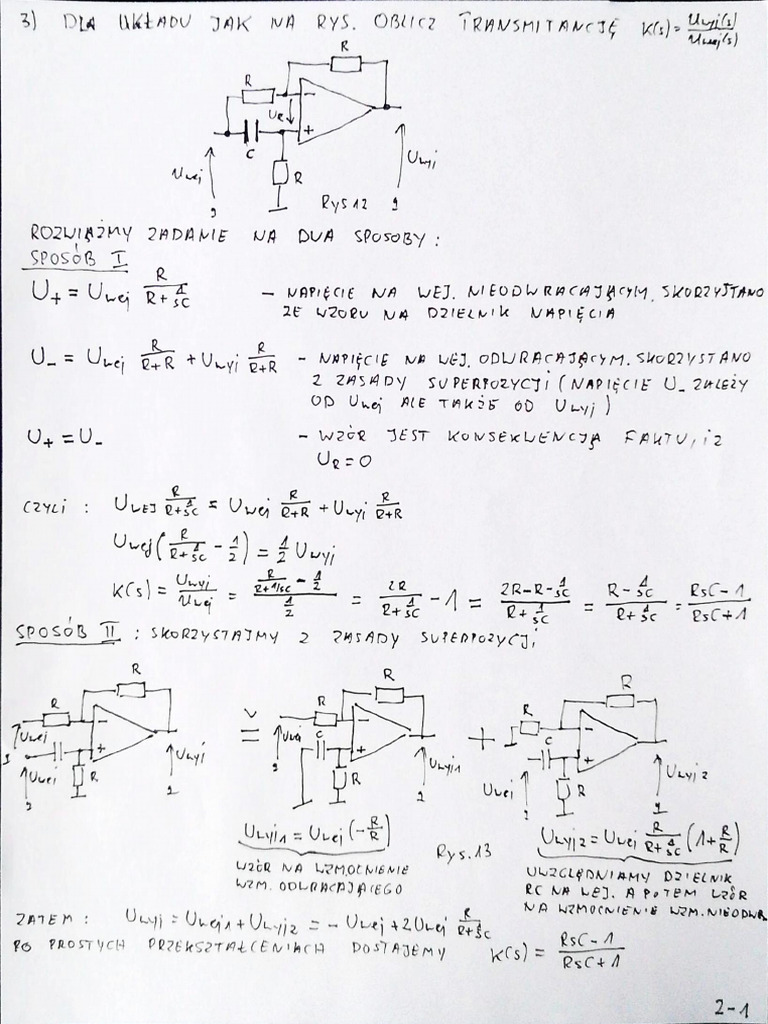 3) DLA UKŁADU JAK NA RYS. OBLICZ TRANSMITANCJĘ K(s)=Uwyj(s)/Uwej(s)
R
R
UR
−
+
C
R
Uwej
Uwyj
Rys 12
ROZWIĄŻMY ZADANIE NA DWA SPOSOBY:
SPOSÓB I
U+ = Uwej R/(R+1/sC) – NAPIĘCIE NA WEJ. NIEODWRACAJĄCYM. SKORZYSTANO
ZE WZORU NA DZIELNIK NAPIĘCIA
U- = Uwej R/(R+R) + Uwyj R/(R+R) – NAPIĘCIE NA WEJ. ODWRACAJĄCYM. SKORZYSTANO
Z ZASADY SUPERPOZYCJI (NAPIĘCIE U- ZALEŻY
OD Uwej ALE TAKŻE OD Uwyj)
U+ = U- – WZÓR JEST KONSEKWENCJĄ FAKTU, IŻ
UR=0
CZYLI : UWEJ R/(R+1/sC) = Uwej R/(R+R) + Uwyj R/(R+R)
Uwej(R/(R+1/sC) - 1/2) = 1/2 Uwyj
K(s) = Uwyj/Uwej = (R/(R+1/sC) - 1/2)/(1/2) = 2R/(R+1/sC) - 1 = (2R-R-1/sC)/(R+1/sC) = (R-1/sC)/(R+1/sC) = (RsC-1)/(RsC+1)
SPOSÓB II : SKORZYSTAJMY Z ZASADY SUPERPOZYCJI
R R R
R = R + R
− − −
C C
+ + +
Uwej Uwej Uwyj R
Uwej R Uwyj1
Uwej R Uwyj2
Uwyj1 = Uwej(-R/R) Rys.13 Uwyj2 = Uwej R/(R+1/sC) (1+R/R)
WZÓR NA WZMOCNIENIE
WZM. ODWRACAJĄCEGO
UWZGLĘDNIAMY DZIELNIK
RC NA WEJ. A POTEM WZÓR
NA WZMOCNIENIE WZM. NIEODWR
ZATEM : Uwyj = Uwej1 + Uwyj2 = - Uwej + 2Uwej R/(R+1/sC)
PO PROSTYCH PRZEKSZTAŁCENIACH DOSTAJEMY K(s) = (RsC-1)/(RsC+1)
2-1